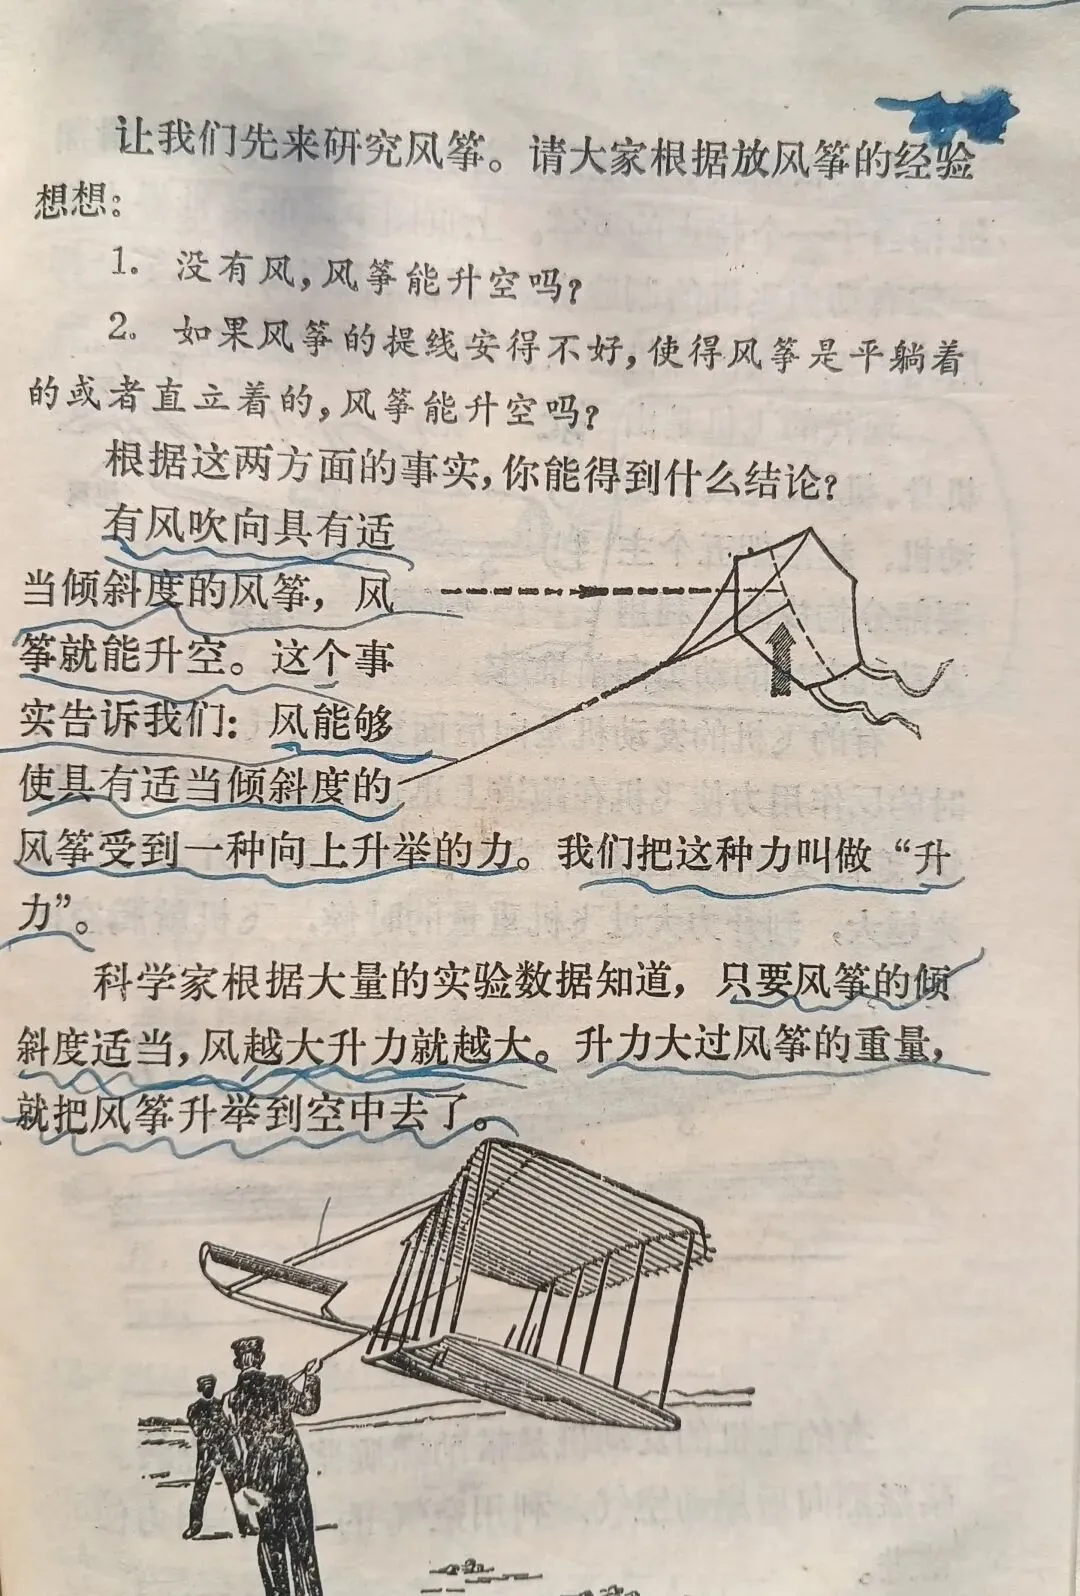 让我们先来研究风筝。请大家根据放风筝的经验
想想：
1. 没有风，风筝能升空吗？
2. 如果风筝的提线安得不好，使得风筝是平躺着
的或者直立着的，风筝能升空吗？
根据这两方面的事实，你能得到什么结论？
有风吹向具有适
当倾斜度的风筝，风
筝就能升空。这个事
实告诉我们：风能够
使具有适当倾斜度的
风筝受到一种向上升举的力。我们把这种力叫做“升
力”。
科学家根据大量的实验数据知道，只要风筝的倾
斜度适当，风越大升力就越大。升力大过风筝的重量，
就把风筝升举到空中去了。